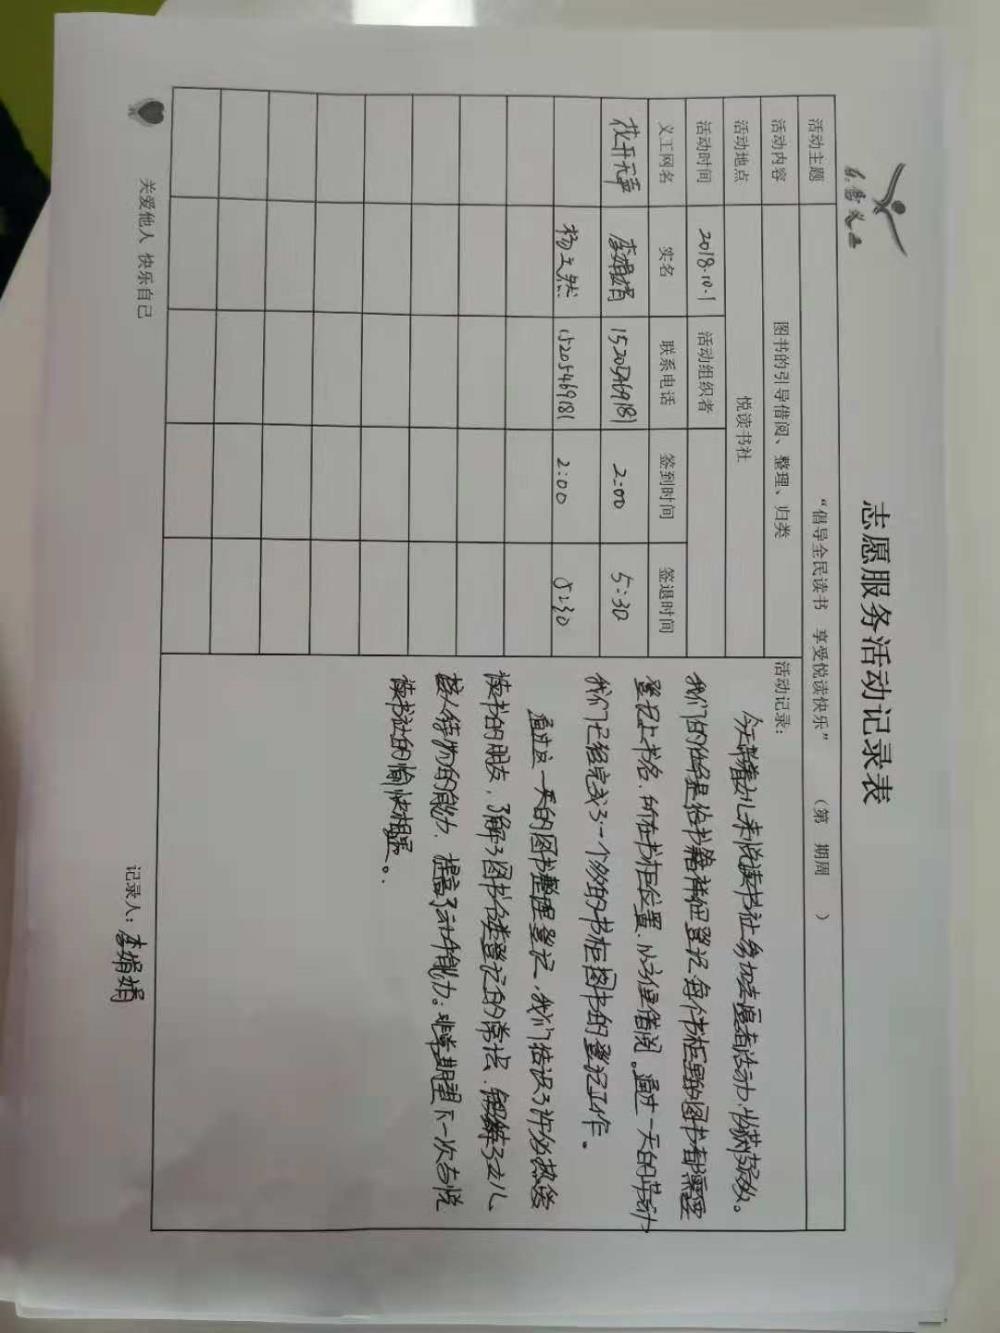 东营义工
志愿服务活动记录表
活动主题 “倡导全民读书 享受悦读快乐” （第 期周 ）
活动内容 图书的引导借阅、整理、归类
活动地点 悦读书社
活动时间 2018.10.1 活动组织者
义工网名 实名 联系电话 签到时间 签退时间
花开无声 李娟娟 15205469181 2:00 5:30
杨文然 15205469181 2:00 5:30
活动记录：
今天带着女儿来悦读书社参加志愿者活动，收获颇丰。
我们的任务是给书籍详细登记，每个书柜里的图书都需要
登记上书名、所在书柜位置，以方便借阅。通过一天的劳动
我们已经完成了一个多的书柜图书的登记工作。
通过这一天的图书整理登记，我们结识了许多热爱
读书的朋友，了解了图书分类登记的常识，锻炼了女儿
待人待物的能力，提高了动手能力。非常期望下一次与悦
读书社的愉快相遇。
关爱他人 快乐自己
记录人：李娟娟